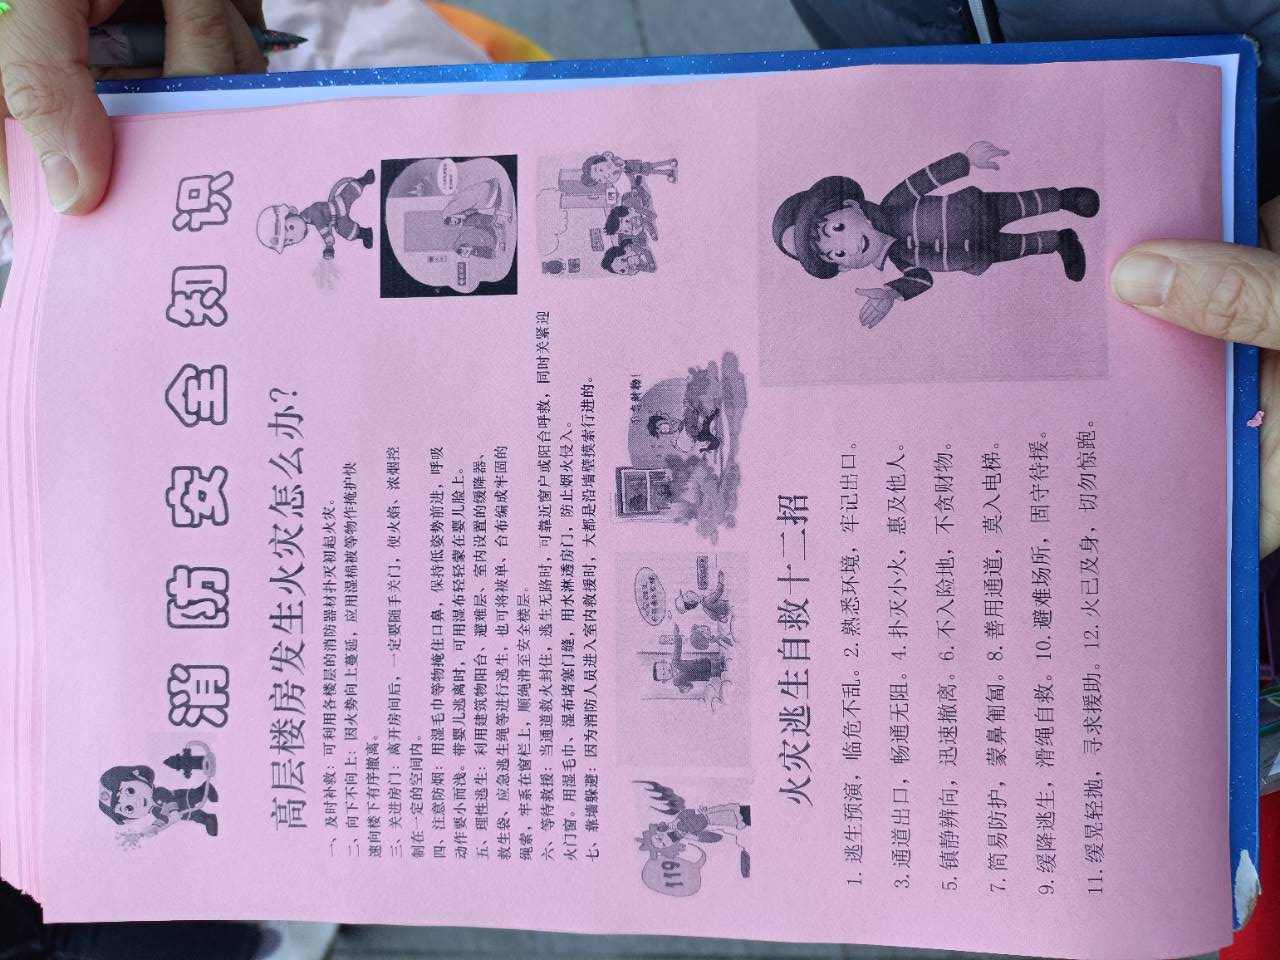 消防安全知识
高层楼房发生火灾怎么办?
一、及时补救：可利用各楼层的消防器材扑灭初起火灾。
二、向下不向上：因火势向上蔓延，应用湿棉被等物作掩护快
速向楼下有序撤离。
三、关进房门：离开房间后，一定要随手关门，使火焰、浓烟控
制在一定的空间内。
四、注意防烟：用湿毛巾等物掩住口鼻，保持低姿势前进，呼吸
动作要小而浅。带婴儿逃离时，可用湿布轻轻蒙在婴儿脸上。
五、理性逃生：利用建筑物阳台、避难层、室内设置的缓降器、
救生袋、应急逃生绳等进行逃生，也可将被单、台布编成牢固的
绳索，牢系在窗栏上，顺绳滑至安全楼层。
六、等待救援：当通道救火封住，逃生无路时，可靠近窗户或阳台呼救，同时关紧迎
火门窗。用湿毛巾、湿布堵塞门缝，用水淋透房门，防止烟火侵入。
七、靠墙躲避：因为消防人员进入室内救援时，大都是沿墙壁摸索行进的。
119
不贪财物!
火灾逃生自救十二招
1. 逃生预演，临危不乱。2. 熟悉环境，牢记出口。
3. 通道出口，畅通无阻。4. 扑灭小火，惠及他人。
5. 镇静辨向，迅速撤离。6. 不入险地，不贪财物。
7. 简易防护，蒙鼻匍匐。8. 善用通道，莫入电梯。
9. 缓降逃生，滑绳自救。10. 避难场所，固守待援。
11. 缓晃轻抛，寻求援助。12. 火已及身，切勿惊跑。